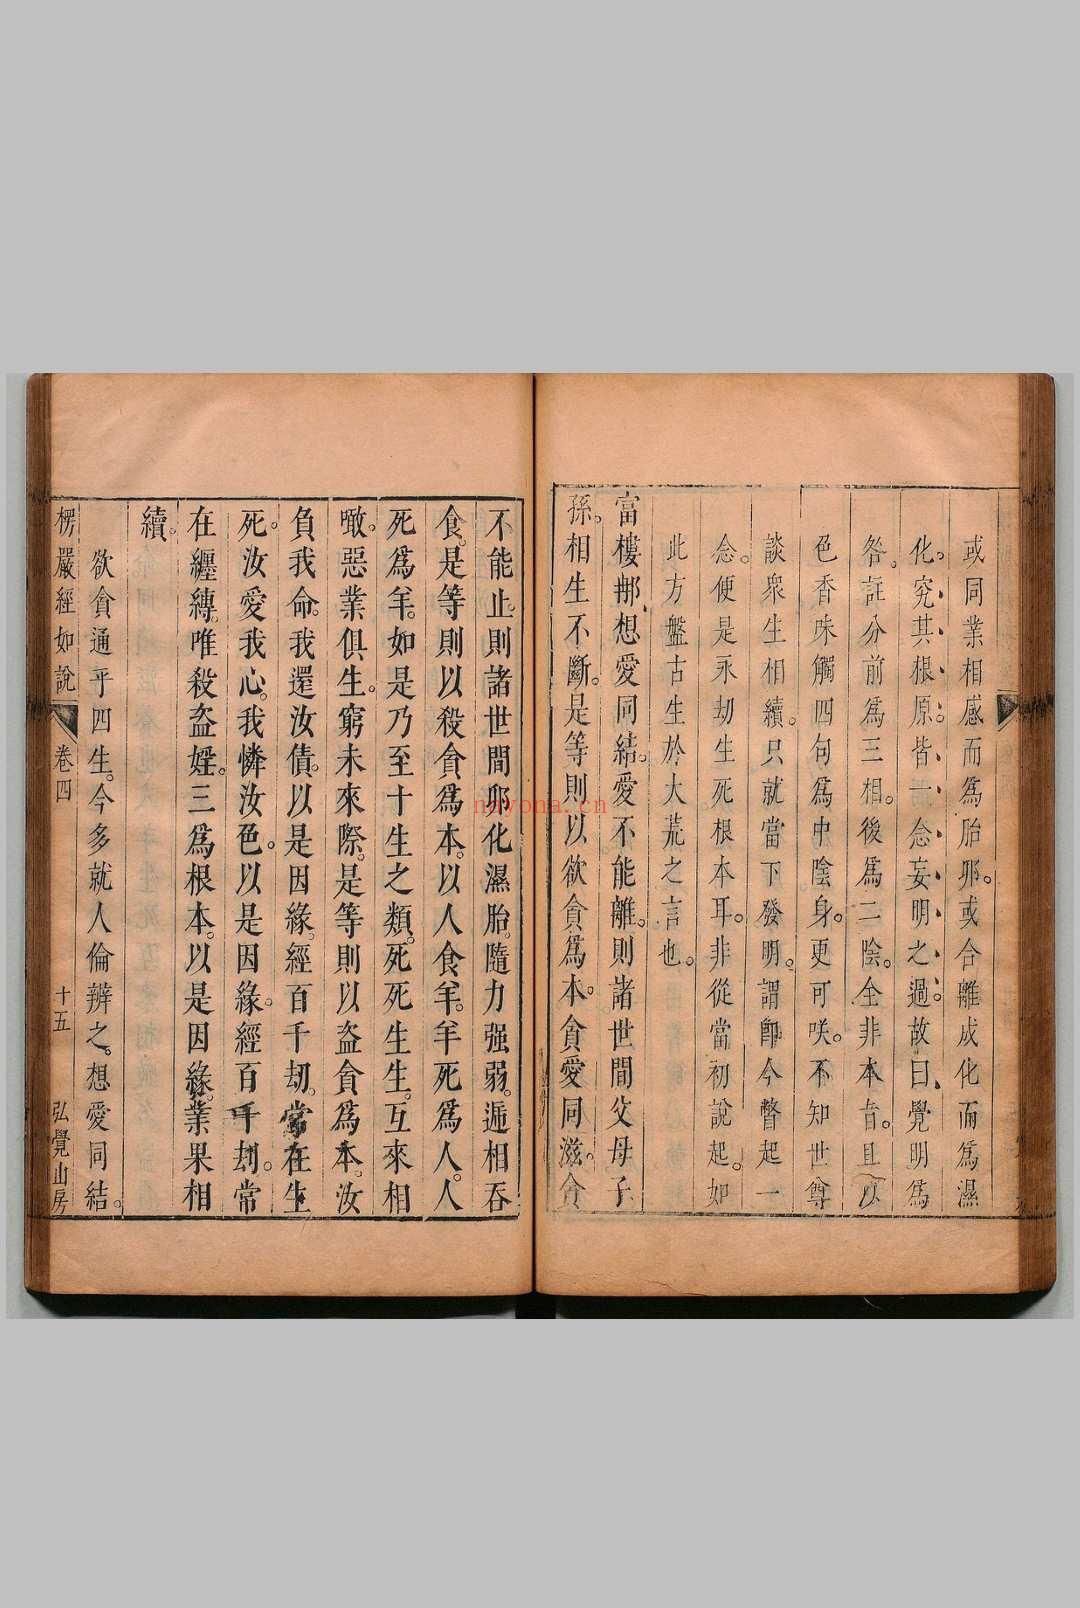 或同業相感而爲胎卵。或合離成化而爲濕
化。究其根原。皆一念妄明之過。故曰覺明爲
咎。註分前爲三相。後爲二陰。全非本旨。且以
色香味觸四句爲中陰身。更可咲。不知世尊
談衆生相續。只就當下發明。謂即今瞥起一
念。便是永劫生死根本耳。非從當初說起。如
此方盤古生於大荒之言也。
富樓那想愛同結。愛不能離。則諸世間父母子
孫。相生不斷。是等則以欲貪爲本。貪愛同滋。貪
不能止。則諸世間卵化濕胎。隨力强弱。遞相吞
食。是等則以殺貪爲本。以人食羊。羊死爲人。人
死爲羊。如是乃至十生之類。死死生生。互來相
噉。惡業俱生。窮未來際。是等則以盜貪爲本。汝
負我命。我還汝債。以是因緣。經百千劫。常在生
死。汝愛我心。我憐汝色。以是因緣。經百千劫。常
在纏縛。唯殺盜婬。三爲根本。以是因緣。業果相
續。
欲貪通乎四生。今多就人倫辨之。想愛同結。
楞嚴經如說 卷四 十五 弘覺山房
nayona.cn